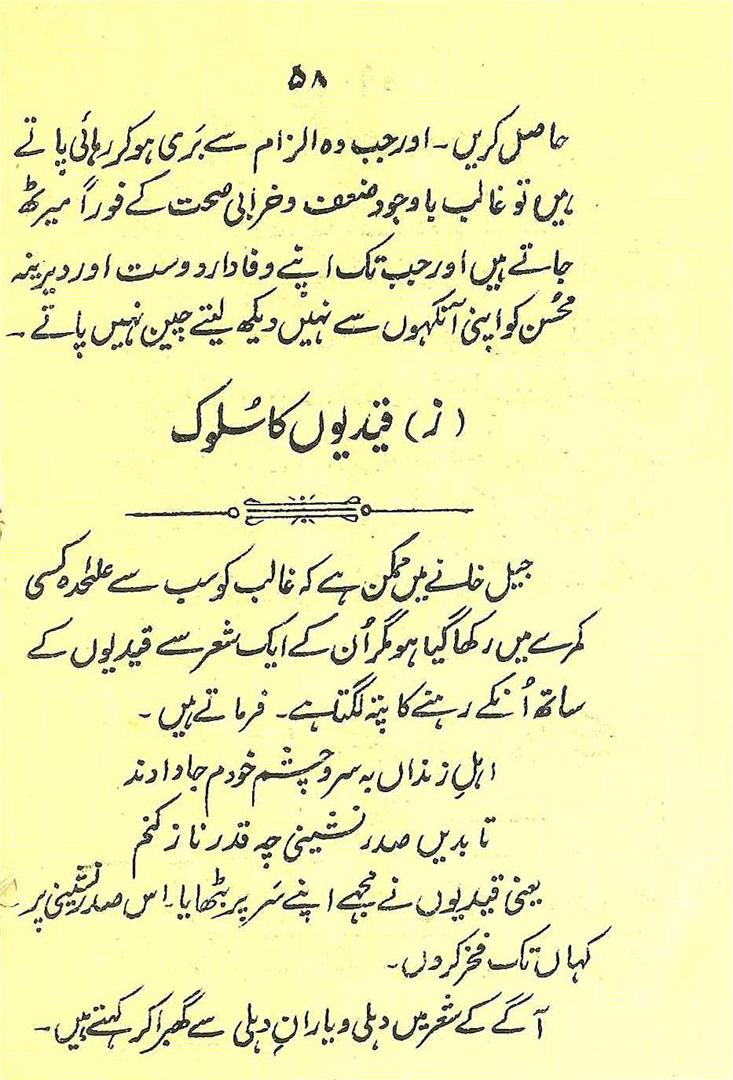 ۵۸
حاصل کریں۔ اور جب وہ الزام سے بَری ہو کر رہائی پاتے
ہیں تو غالب باوجود ضعف و خرابی صحت کے فوراً میرٹھ
جاتے ہیں اور جب تک اپنے وفادار دوست اور دیرینہ
محُسن کو اپنی آنکہوں سے نہیں دیکھ لیتے چین نہیں پاتے۔
(ز) قیدیوں کا سُلوک
جیل خانے میں ممکن ہے کہ غالب کو سب سے علٰحدہ کسی
کمرے میں رکھا گیا ہو مگر اُن کے ایک شعر سے قیدیوں کے
ساتھ اُنکے رہنے کا پتہ لگتا ہے۔ فرماتے ہیں۔
اہلِ زنداں بہ سر و چشم خودم جا دادند
تا بدیں صدر نشینی چہ قدر ناز کنم
یعنی قیدیوں نے مجہے اپنے سَر پر بٹھایا۔ اس صدر نشینی پر
کہاں تک فخر کروں۔
آگے کے شعر میں دہلی و یارانِ دہلی سے گھبرا کر کہتے ہیں۔